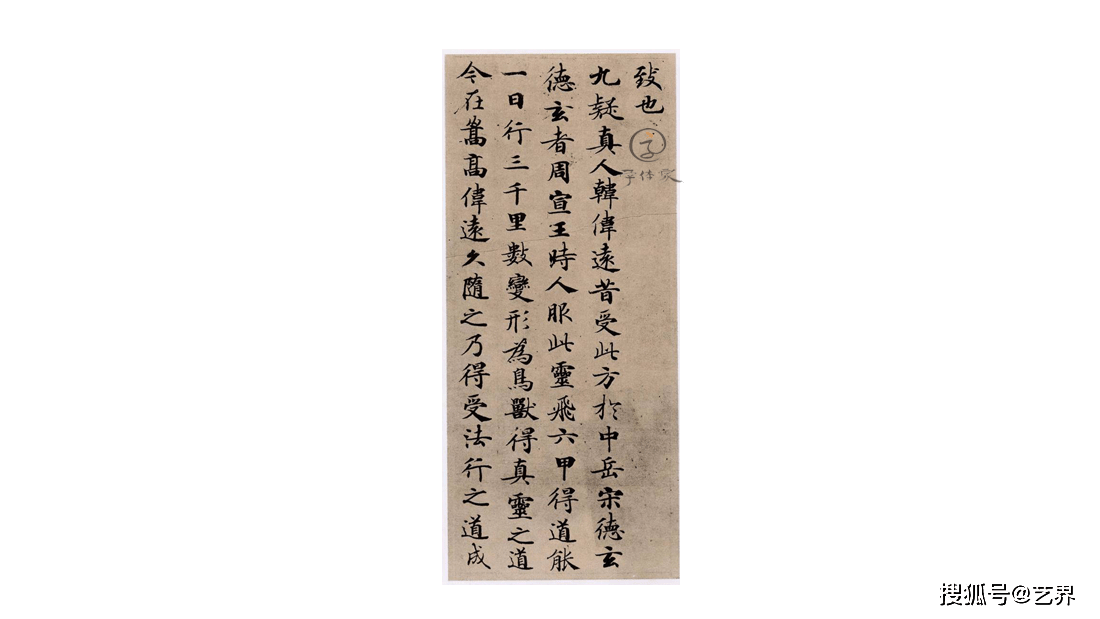 致也
九疑真人韓偉遠昔受此方於中岳宋德玄
德玄者周宣王時人服此靈飛六甲得道能
一日行三千里數變形為鳥獸得真靈之道
今在嵩高偉遠久隨之乃得受法行之道成
搜狐号@艺界